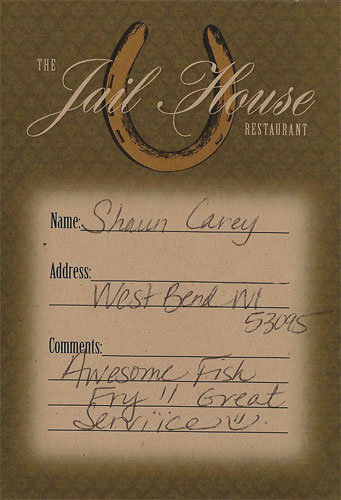 THE
Jail House
RESTAURANT
Name: Shawn Carey
Address:
West Bend WI
53095
Comments:
Awesome Fish
Fry!! Great
Serviice